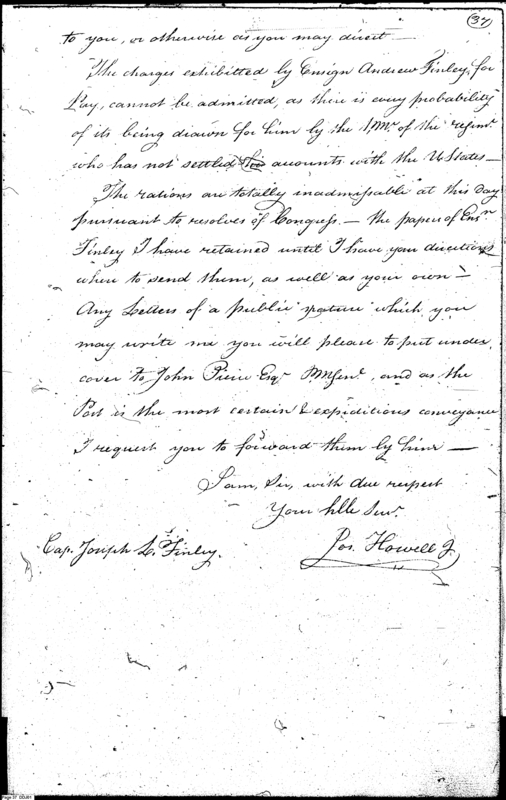 37
to you, or otherwise as you may direct —
The charges exhibitted by Ensign Andrew Finley, for
Pay, cannot be admitted, as there is every probability
of its being drawn for him by the P.Mr. of the regimt.
who has not settled his accounts with the U States —
The rations are totally inadmissable at this day
pursuant to resolves of Congress — the papers of Ensn.
Finley I have retained until I have you directions
where to send them, as well as your own —
Any Letters of a public nature which you
may write me you will please to put under
cover to John Pierce Esqr. PMGenl., and as the
Post is the most certain & expiditious conveyance
I request you to forward them by him —
I am, Sir, with due respect
Your hlle Servt.
Cap. Joseph L. Finley. Jos. Howell J.
Page 37 DDJ01